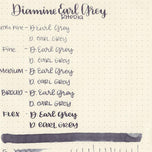 Diamine Earl Grey
Rhodia
Extra Fine - D. Earl Grey
D. EARL GREY
Fine - D. Earl Grey
D. EARL GREY
MEDIUM - D. Earl Grey
D. EARL GREY
BROAD - D. Earl Grey
D. EARL GREY
FLEX - D. Earl Grey
D. EARL GREY